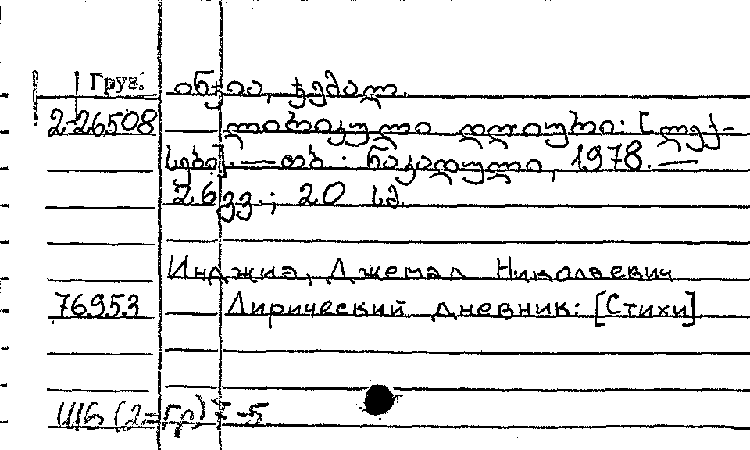 Груз. ინჯია, ჯემალ.
2-26508 ლირიკული დღიური: [ლექ-
სები]. — თბ.: ნაკადული, 1978. —
26 გვ.; 20 სმ.
Инджиа, Джемал Николаевич
76953 Лирический дневник: [Стихи]